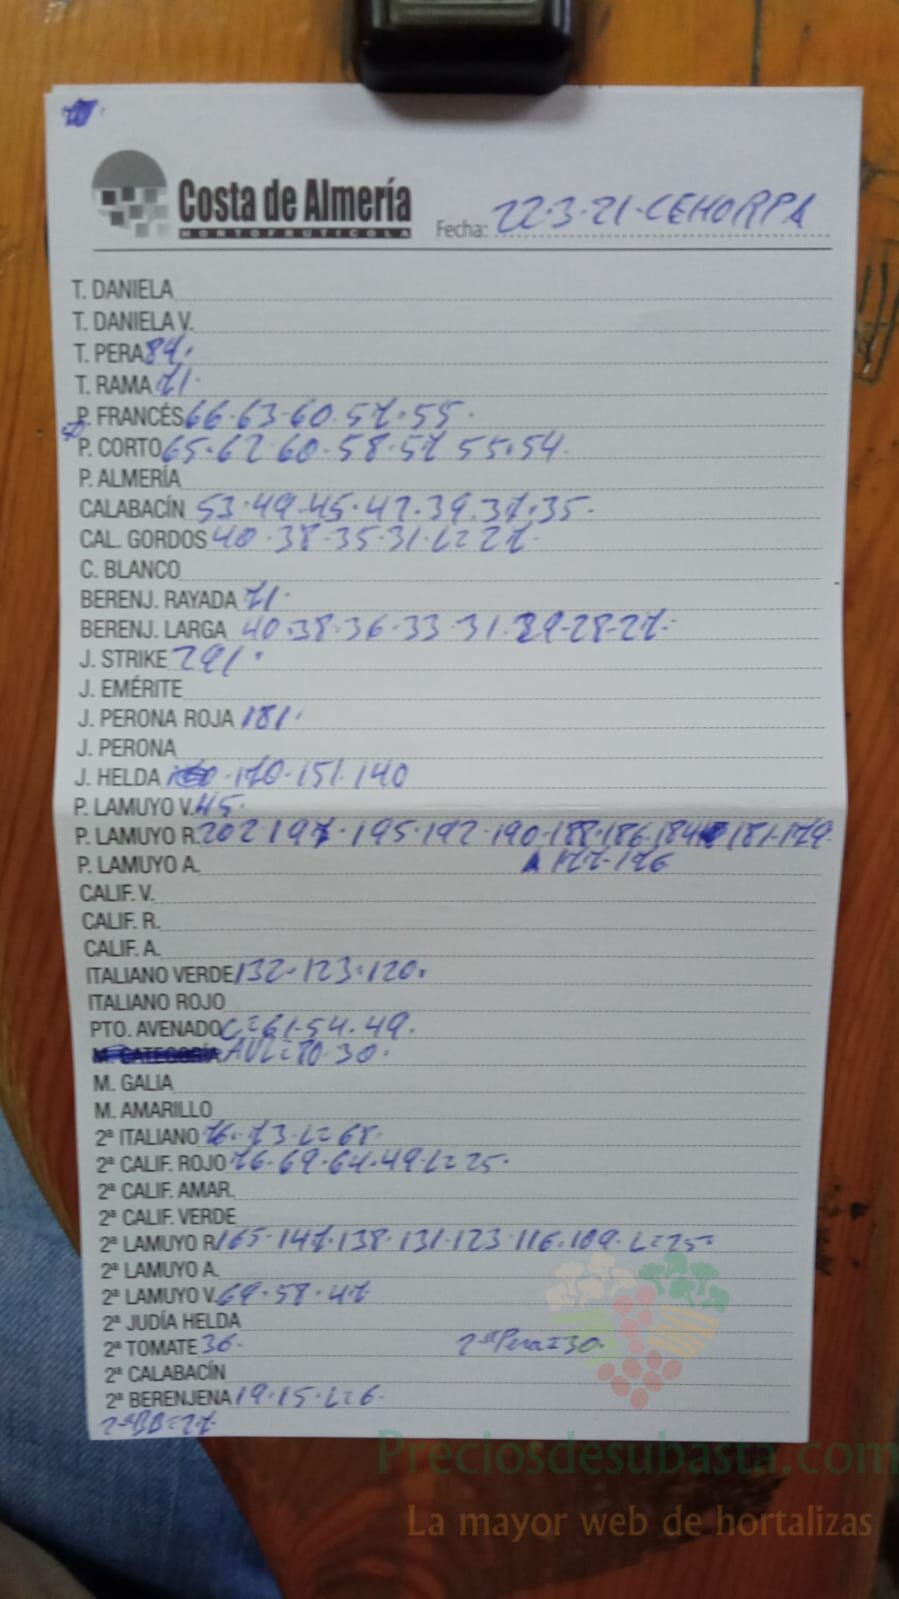 Costa de Almería
HORTOFRUTICOLA
Fecha: 22-3-21-CEHORPA
T. DANIELA
T. DANIELA V.
T. PERA 84.
T. RAMA 71.
P. FRANCÉS 66-63-60-57-55.
P. CORTO 65-62 60-58-57 55-54.
P. ALMERÍA
CALABACÍN 53-49-45-42-39-37-35-
CAL. GORDOS 40-38-35-31-L=27-
C. BLANCO
BERENJ. RAYADA 71-
BERENJ. LARGA 40-38-36-33-31-29-28-27-
J. STRIKE 291.
J. EMÉRITE
J. PERONA ROJA 181.
J. PERONA
J. HELDA -170-151-140
P. LAMUYO V. 45-
P. LAMUYO R. 202 197-195-192-190-188-186-184 181-179-
P. LAMUYO A. 177-176
CALIF. V.
CALIF. R.
CALIF. A.
ITALIANO VERDE 132-123-120.
ITALIANO ROJO
PTO. AVENADO C=61-54-49.
M. CATEGORÍA 30.
M. GALIA
M. AMARILLO
2ª ITALIANO 76-73-L=68-
2ª CALIF. ROJO 76-69-64-49-L=25-
2ª CALIF. AMAR.
2ª CALIF. VERDE
2ª LAMUYO R. 165-147-138-131-123-116-109-L=25-
2ª LAMUYO A.
2ª LAMUYO V. 69-58-47
2ª JUDÍA HELDA
2ª TOMATE 36. 2ª Pera=30.
2ª CALABACÍN
2ª BERENJENA 19-15-L=6-
2ªBB=27
Preciosdesubasta.com
La mayor web de hortalizas